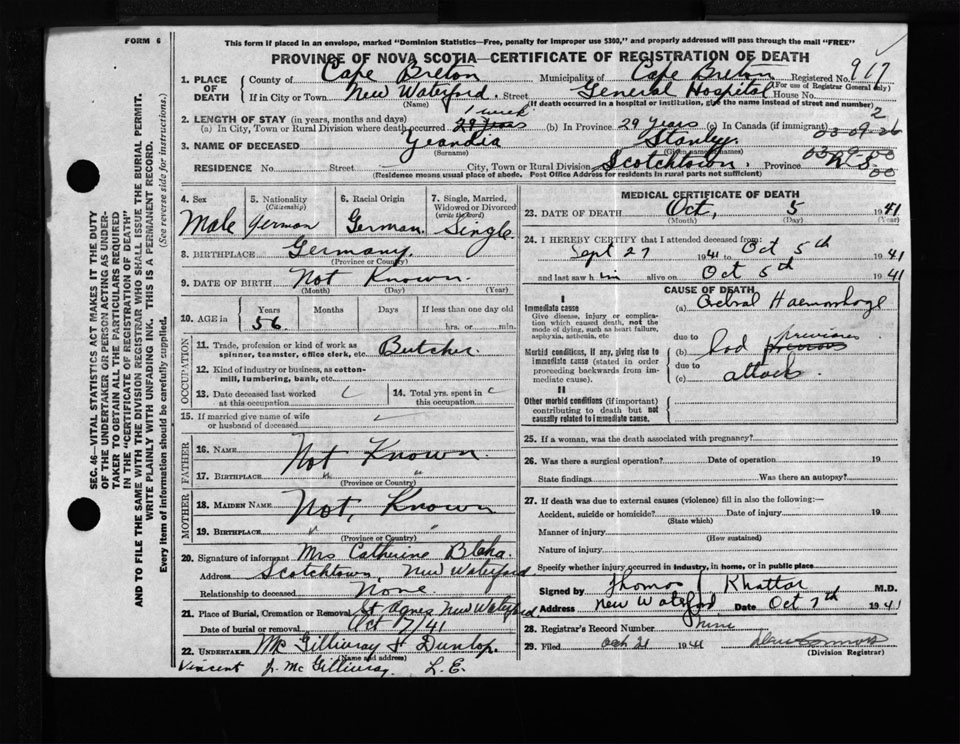 FORM 6
This form if placed in an envelope, marked "Dominion Statistics—Free, penalty for improper use $300," and properly addressed will pass through the mail "FREE"
PROVINCE OF NOVA SCOTIA—CERTIFICATE OF REGISTRATION OF DEATH
1. PLACE OF DEATH County of Cape Breton Municipality of Cape Breton Registered No. 917
(For use of Registrar General only)
If in City or Town New Waterford Street General Hospital House No.
(Name) (If death occurred in a hospital or institution, give the name instead of street and number)
2. LENGTH OF STAY (in years, months and days)
(a) In City, Town or Rural Division where death occurred 29 years 1 week (b) In Province 29 years (c) In Canada (if immigrant)
03-09-26
3. NAME OF DECEASED Yeandia Stanly
(Surname) (Given names)
RESIDENCE No. Street City, Town or Rural Division Scotchtown. Province N.S.
(Residence means usual place of abode. Post Office Address for residents in rural parts not sufficient)
4. Sex Male
5. Nationality (Citizenship) German
6. Racial Origin German.
7. Single, Married, Widowed or Divorced (write the word) Single
8. BIRTHPLACE Germany.
(Province or Country)
9. DATE OF BIRTH Not Known.
(Month) (Day) (Year)
10. AGE in Years 56 Months Days If less than one day old
hrs. or min.
OCCUPATION
11. Trade, profession or kind of work as spinner, teamster, office clerk, etc. Butcher.
12. Kind of industry or business, as cotton-mill, lumbering, bank, etc.
13. Date deceased last worked at this occupation
14. Total yrs. spent in this occupation
15. If married give name of wife or husband of deceased
FATHER
16. NAME Not Known.
17. BIRTHPLACE " "
(Province or Country)
MOTHER
18. MAIDEN NAME Not, Known
19. BIRTHPLACE " "
(Province or Country)
20. Signature of informant Mrs Catherine Blaha.
Address Scotchtown, New Waterford.
Relationship to deceased None.
21. Place of Burial, Cremation or Removal St Agnes New Waterford.
Date of burial or removal Oct 7/41
22. UNDERTAKER McGillivray & Dunlop.
(Name and address)
Vincent J. McGillivray. L.E.
MEDICAL CERTIFICATE OF DEATH
23. DATE OF DEATH Oct, 5 1941
(Month) (Day) (Year)
24. I HEREBY CERTIFY that I attended deceased from:
Sept 27 1941 to Oct 5th 1941
and last saw him alive on Oct 5th 1941
CAUSE OF DEATH
I
Immediate cause
Give disease, injury or complication which caused death, not the mode of dying, such as heart failure, asphyxia, asthenia, etc
(a) Cerebral Haemorrhage
due to
Morbid conditions, if any, giving rise to immediate cause (stated in order proceeding backwards from immediate cause).
(b) had previous
due to
(c) attack.
II
Other morbid conditions (if important) contributing to death but not causally related to immediate cause.
25. If a woman, was the death associated with pregnancy?
26. Was there a surgical operation? Date of operation 19
State findings Was there an autopsy?
27. If death was due to external causes (violence) fill in also the following:—
Accident, suicide or homicide? Date of injury 19
(State which)
Manner of injury
(How sustained)
Nature of injury
Specify whether injury occurred in industry, in home, or in public place
Signed by Thomas J Khattar M.D.
Address New Waterford Date Oct 7th 1941
28. Registrar's Record Number Nine
29. Filed Oct 21 1941
(Division Registrar)
SEC. 46—VITAL STATISTICS ACT MAKES IT THE DUTY
OF THE UNDERTAKER OR PERSON ACTING AS UNDERTAKER TO OBTAIN ALL THE PARTICULARS REQUIRED
IN THE "CERTIFICATE OF REGISTRATION OF DEATH"
AND TO FILE THE SAME WITH THE DIVISION REGISTRAR WHO SHALL ISSUE THE BURIAL PERMIT.
WRITE PLAINLY WITH UNFADING INK. THIS IS A PERMANENT RECORD.
Every item of information should be carefully supplied. (See reverse side for instructions.)